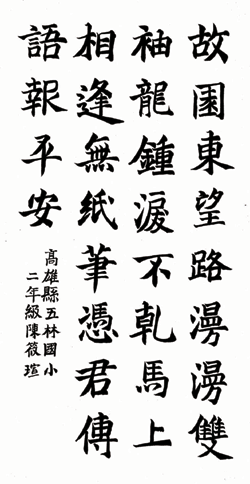 故園東望路漫漫雙
袖龍鍾淚不乾馬上
相逢無紙筆憑君傳
語報平安
高雄縣五林國小
二年級陳筱瑄